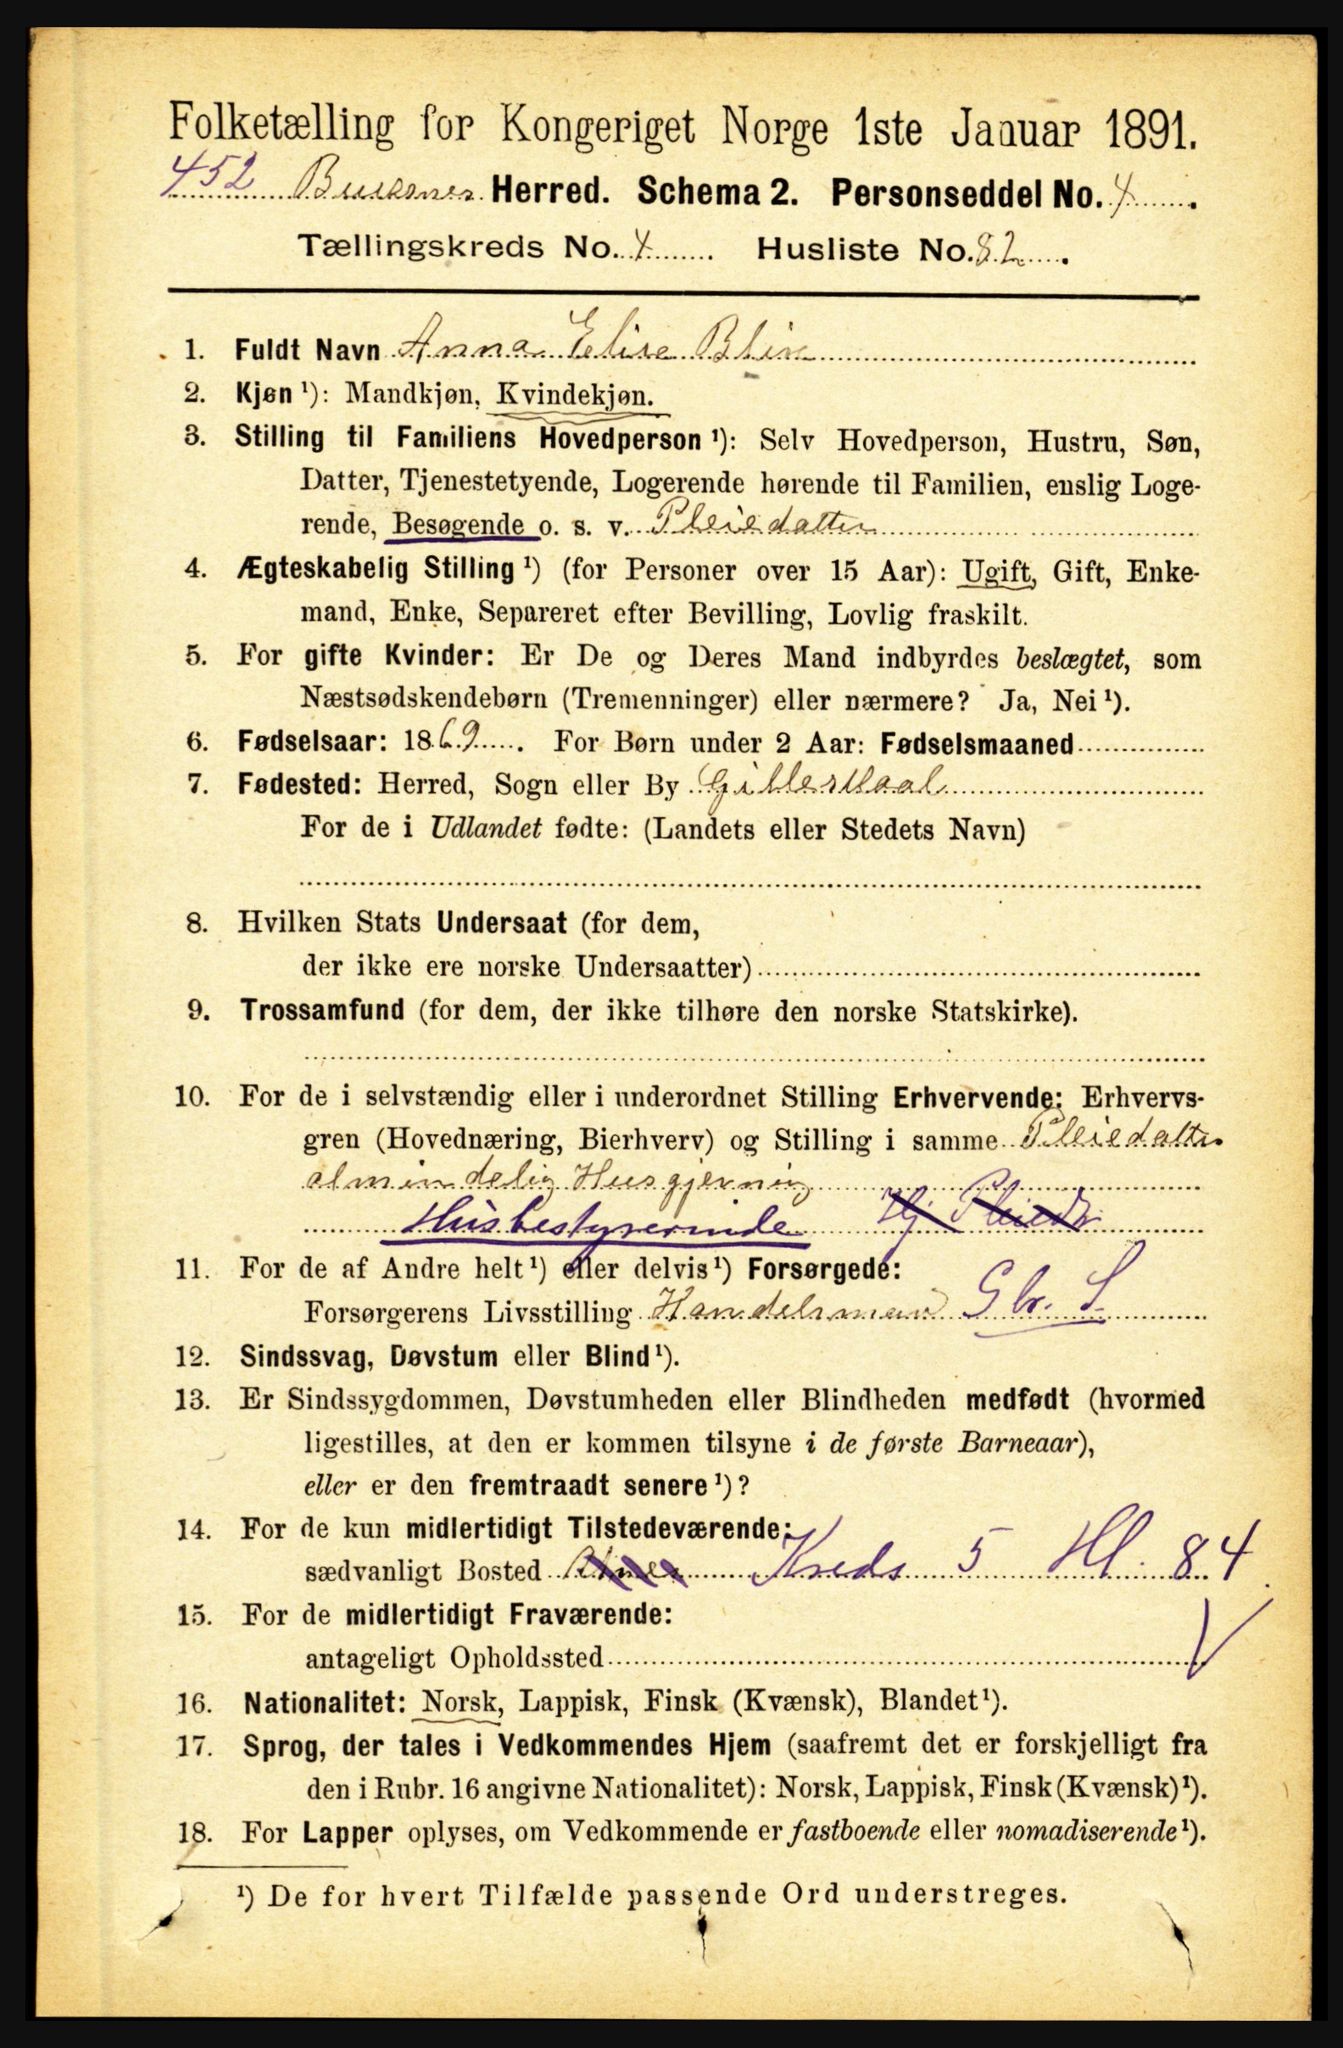 Folketælling for Kongeriget Norge 1ste Januar 1891.
452 Buksnes Herred. Schema 2. Personseddel No. 4.
Tællingskreds No. 4 Husliste No. 82.
1. Fuldt Navn Anna Elise Blix
2. Kjøn ¹): Mandkjøn, Kvindekjøn.
3. Stilling til Familiens Hovedperson ¹): Selv Hovedperson, Hustru, Søn,
Datter, Tjenestetyende, Logerende hørende til Familien, enslig Loge-
rende, Besøgende o. s. v. Pleiedatter
4. Ægteskabelig Stilling ¹) (for Personer over 15 Aar): Ugift, Gift, Enke-
mand, Enke, Separeret efter Bevilling, Lovlig fraskilt.
5. For gifte Kvinder: Er De og Deres Mand indbyrdes beslægtet, som
Næstsødskendebørn (Tremenninger) eller nærmere? Ja, Nei ¹).
6. Fødselsaar: 1869. For Børn under 2 Aar: Fødselsmaaned
7. Fødested: Herred, Sogn eller By Gilleskaal
For de i Udlandet fødte: (Landets eller Stedets Navn)
8. Hvilken Stats Undersaat (for dem,
der ikke ere norske Undersaatter)
9. Trossamfund (for dem, der ikke tilhøre den norske Statskirke).
10. For de i selvstændig eller i underordnet Stilling Erhvervende: Erhvervs-
gren (Hovednæring, Bierhverv) og Stilling i samme Pleiedatter
almindelig Husgjerning
Husbestyrerinde Hj Pleiedr
11. For de af Andre helt ¹) eller delvis ¹) Forsørgede:
Forsørgerens Livsstilling Handelsmand Gbr. S
12. Sindssvag, Døvstum eller Blind ¹).
13. Er Sindssygdommen, Døvstumheden eller Blindheden medfødt (hvormed
ligestilles, at den er kommen tilsyne i de første Barneaar),
eller er den fremtraadt senere ¹)?
14. For de kun midlertidigt Tilstedeværende:
sædvanligt Bosted Kreds 5 Hl. 84
15. For de midlertidigt Fraværende:
antageligt Opholdssted
16. Nationalitet: Norsk, Lappisk, Finsk (Kvænsk), Blandet ¹).
17. Sprog, der tales i Vedkommendes Hjem (saafremt det er forskjelligt fra
den i Rubr. 16 angivne Nationalitet): Norsk, Lappisk, Finsk (Kvænsk) ¹).
18. For Lapper oplyses, om Vedkommende er fastboende eller nomadiserende ¹).
¹) De for hvert Tilfælde passende Ord understreges.